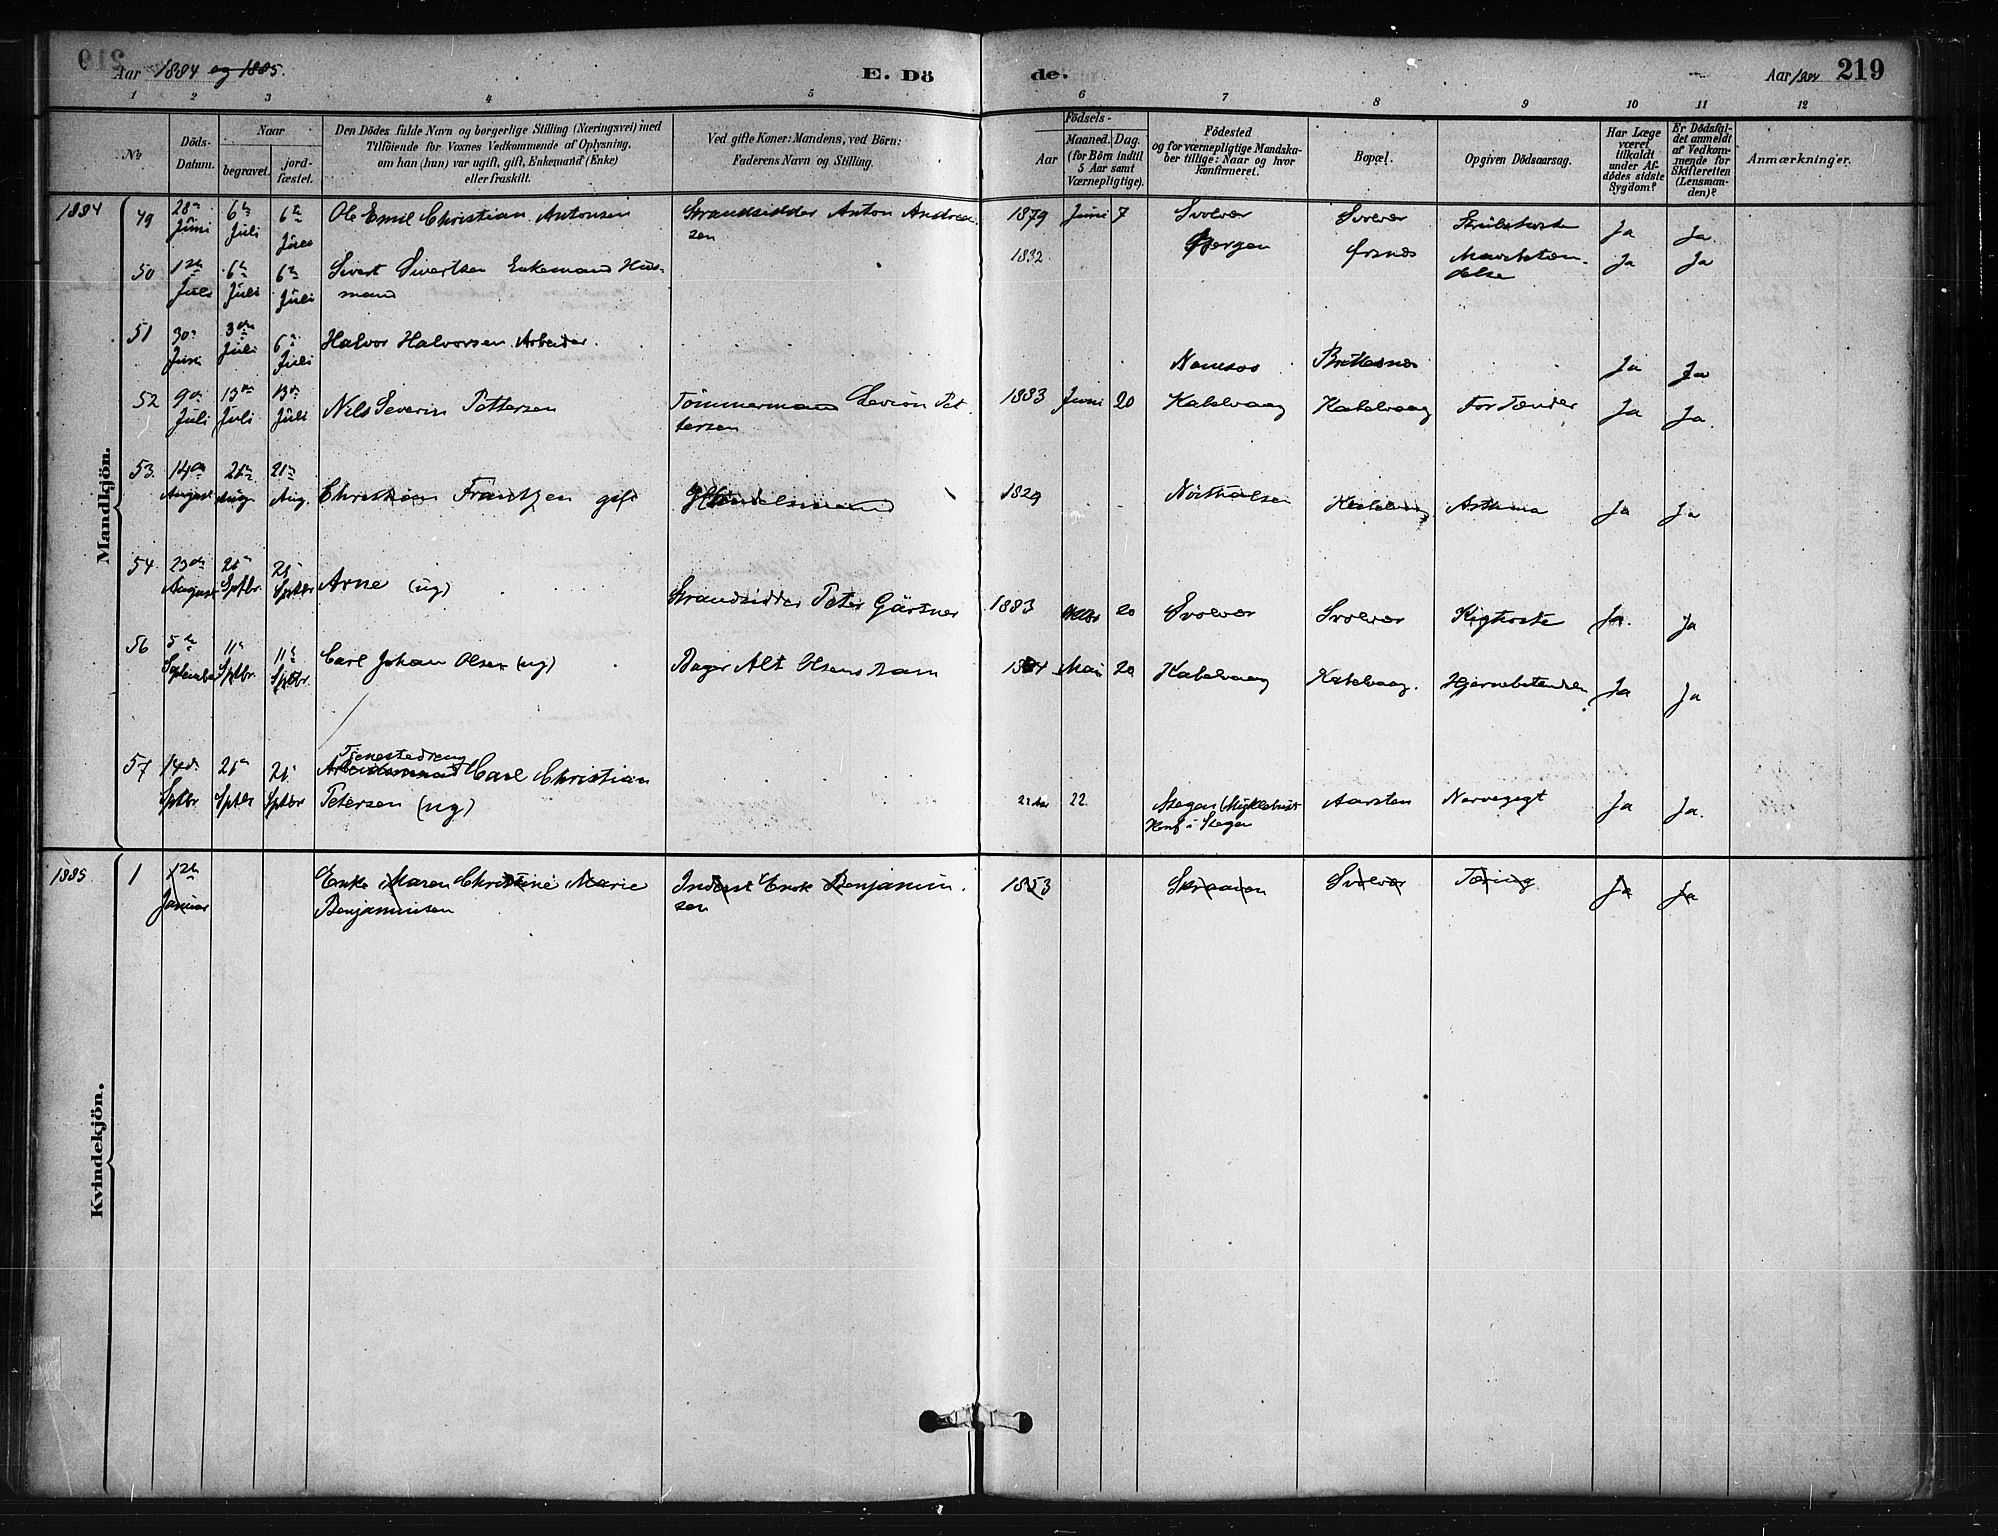 Aar 1884 og 1885.
E. Dö
de.
Aar 1884
219
1 2 3 4 5 6 7 8 9 10 11 12
No
Döds-
Datum.
Naar
begravet.
jord-
fæstet.
Den Dödes fulde Navn og borgerlige Stilling (Næringsvei) med
Tilföiende for Voxnes Vedkommende af Oplysning,
om han (hun) var ugift, gift, Enkemand (Enke)
eller fraskilt.
Ved gifte Koner: Mandens, ved Börn:
Faderens Navn og Stilling.
Födsels-
Aar
Maaned. Dag.
(for Börn indtil
5 Aar samt
Værnepligtige).
Födested
og for værnepligtige Mandska-
ber tillige: Naar og hvor
konfirmeret.
Bopæl.
Opgiven Dödsaarsag.
Har Læge
været
tilkaldt
under Af-
dödes sidste
Sygdom?
Er Dödsfal-
det anmeldt
af Vedkom-
mende for
Skifteretten
(Lensman-
den)?
Anmærkninger.
Mandkjön.
1884
49 28de Juni 6te Juli 6te Juli Ole Emil Christian Antonsen Strandsidder Anton Andrea- 1879 Juni 7 Svolvær Svolvær Strubehoste Ja Ja.
sen
50 1ste Juli 6te Juli 6te Juli Sivert Sivertsen Enkemand Hus- 1832 Bergen Ørsnes Mavebetæn- Ja Ja
mand delse
51 30te Juni 3die Juli 6te Juli Halvor Halvorsen Arbeider. Namsos Brettesnes Ja Ja
52 9de Juli 13de Juli 13de Juli Nils Severin Pettersen Tømmermand Pet- 1883 Juni 20 Kabelvaag Kabelvaag For Tænder Ja Ja.
tersen
53. 14de August 21de Aug. 21de Aug. Christian Frantzen gift Handelsmand 1829 Kabelvaag Asthma Ja Ja
54. 23de August 21de Sptbr. 21de Sptbr Arne (ug) Strandsidder Peter Gärtner 1883 20 Svolvær Svolvær Kighoste Ja. Ja
56 5te September 11te Sptbr. 11te Sptbr. Carl Johan Olsen (ug) Bager Alt Olsens Barn 1884 Mai 20 Kabelvaag Kabelvaag. Hjernebetændelse Ja Ja
57 14de Sptbr. 21de Sptbr 21de Sptbr Tjenestedreng
Arbeidsmand Carl Christian
Petersen (ug) 22 Aar 22. Stegen (Myklebust Aarsten Nervegigt Ja Ja.
Konf i Stegen
Kvindekjön.
1885 1 12te Januar Enke Maren Christine Marie Inderst Enok Benjamin- 1853 Skraaven Svolvær Tæring Ja Ja
Benjaminsen sen